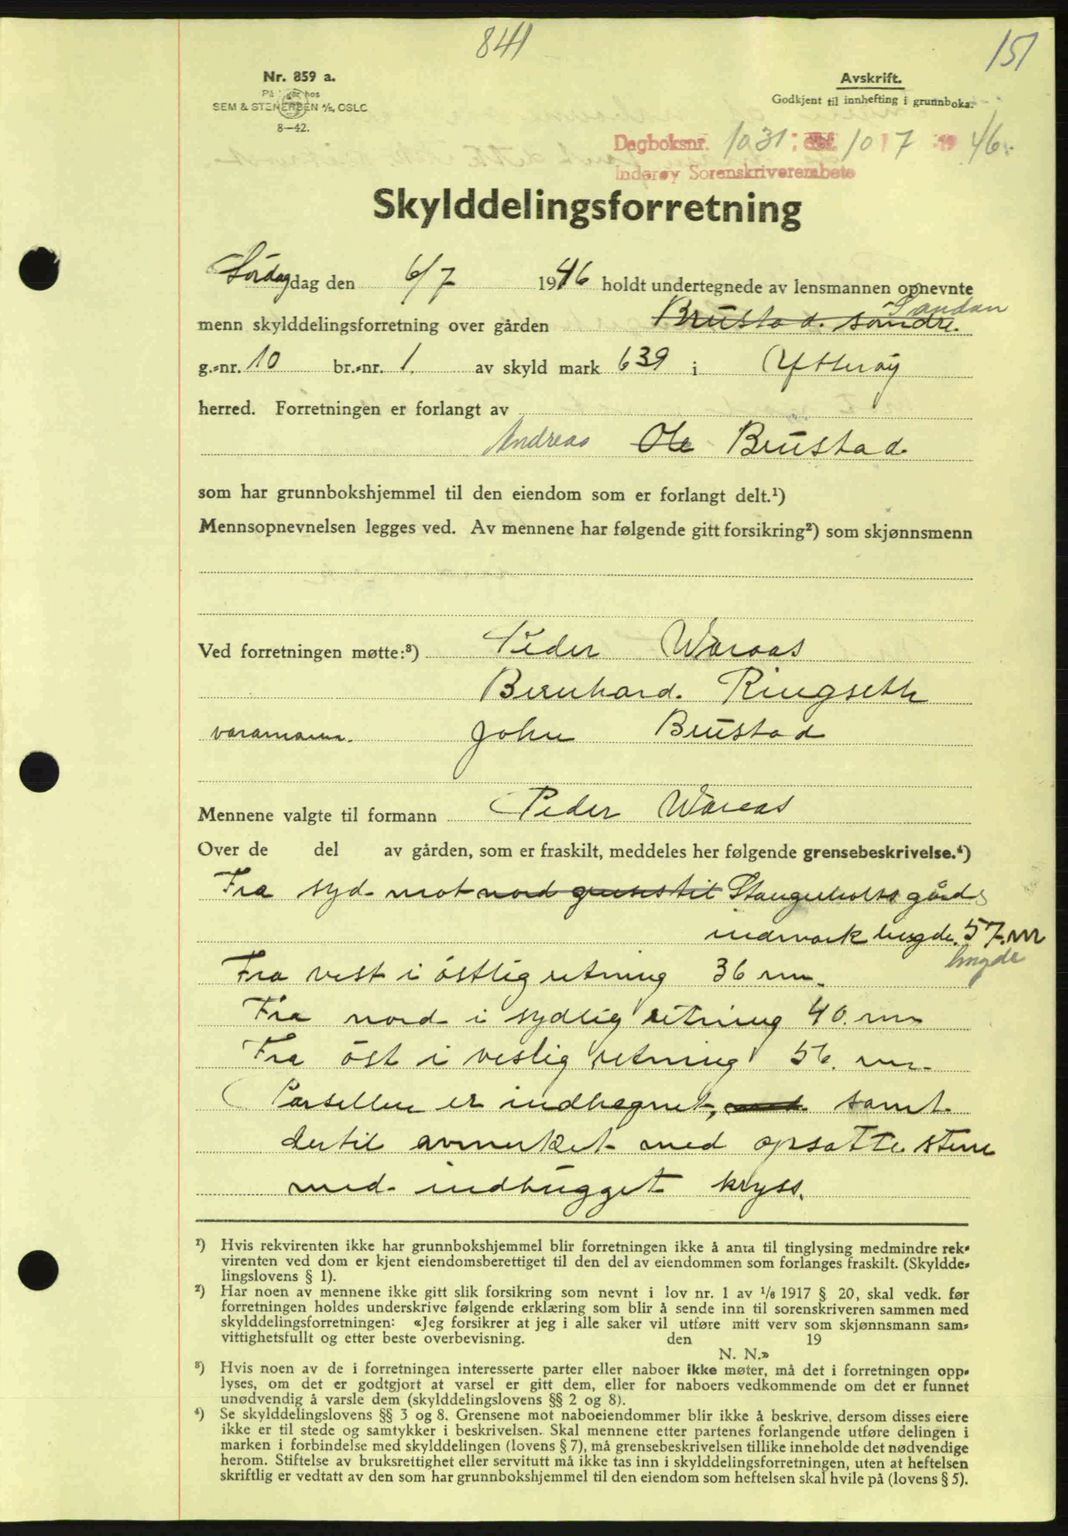 841
151
Nr. 859 a.
SEM & STENERSEN A/S, OSLO
8-42.
Avskrift.
Godkjent til innhefting i grunnboka.
Dagboksnr. 1031 10/7 1946.
Inderøy Sorenskriverembete
Skylddelingsforretning
Lørdag dag den 6/7 1946 holdt undertegnede av lensmannen opnevnte
Sandan
menn skylddelingsforretning over gården Brustad søndre.
g.-nr. 10 br.-nr. 1. av skyld mark 639 i Ytterøy
herred. Forretningen er forlangt av
Andreas Ole Brustad
som har grunnbokshjemmel til den eiendom som er forlangt delt.¹)
Mennsopnevnelsen legges ved. Av mennene har følgende gitt forsikring²) som skjønnsmenn
Ved forretningen møtte:³) Peder Waraas
Bernhard Ringseth
varamann. John Brustad
Mennene valgte til formann Peder Waraas
Over de del av gården, som er fraskilt, meddeles her følgende grensebeskrivelse.⁴)
Fra syd mot nord
indmark lengde 57. m
lengde
Fra vest i østlig retning 36 m.
Fra nord i sydlig retning 40. m
Fra øst i veslig retning 56. m.
Parsellen er indhegnet, samt
dertil avmerket med opsatte stene
med indhugget kryss.
¹) Hvis rekvirenten ikke har grunnbokshjemmel blir forretningen ikke å anta til tinglysing medmindre rek-
virenten ved dom er kjent eiendomsberettiget til den del av eiendommen som forlanges fraskilt. (Skyldde-
lingslovens § 1).
²) Har noen av mennene ikke gitt slik forsikring som nevnt i lov nr. 1 av ¹/₆ 1917 § 20, skal vedk. før
forretningen holdes underskrive følgende erklæring som blir å sende inn til sorenskriveren sammen med
skylddelingsforretningen: «Jeg forsikrer at jeg i alle saker vil utføre mitt verv som skjønnsmann sam-
vittighetsfullt og etter beste overbevisning. den 19
N. N.»
³) Hvis noen av de i forretningen interesserte parter eller naboer ikke møter, må det i forretningen opp-
lyses, om det er godtgjort at varsel er gitt dem, eller for naboers vedkommende om det er funnet
unødvendig å varsle dem (skylddelingslovens §§ 2 og 8).
⁴) Se skylddelingslovens §§ 3 og 8. Grensene mot naboeiendommer blir ikke å beskrive, dersom disses eiere
ikke er til stede og samtykker i beskrivelsen. Skal mennene etter partenes forlangende utføre delingen i
marken i forbindelse med skylddelingen (lovens § 7), må grensebeskrivelsen tillike inneholde det nødvendige
herom. Stiftelse av bruksrettighet eller servitutt må ikke tas inn i skylddelingsforretningen, uten at heftelsen
skriftlig er vedtatt av den som har grunnbokshjemmel til den eiendom som heftelsen skal hvile på (lovens § 5).